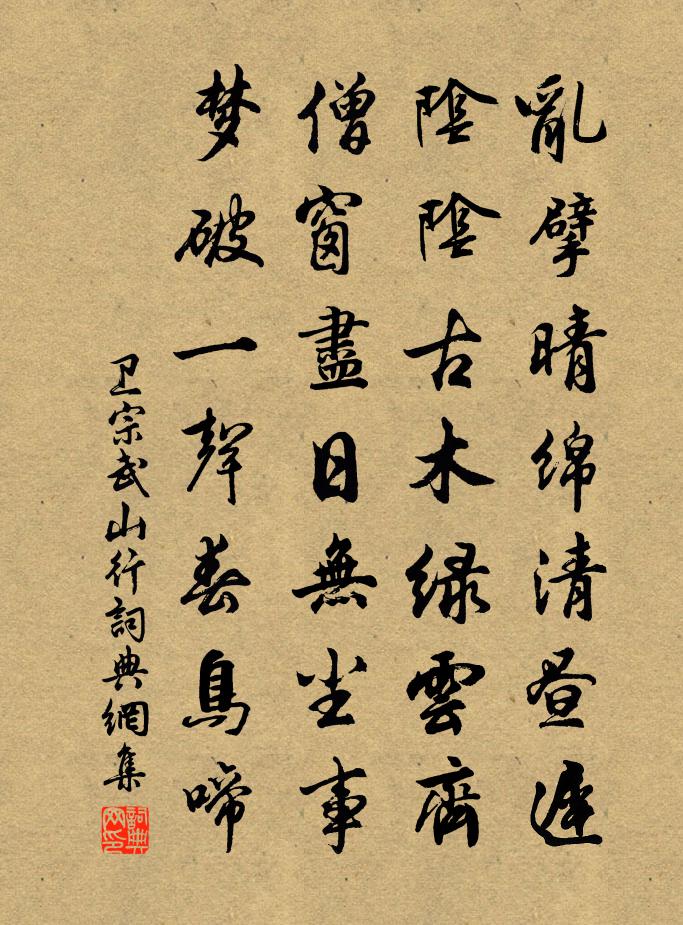 亂擘晴綿清晝遲
陰陰古木緑雲齊
僧窗盡日無尘事
梦破一聲春鳥啼
卫宗武山行詞典網集
詞典网印